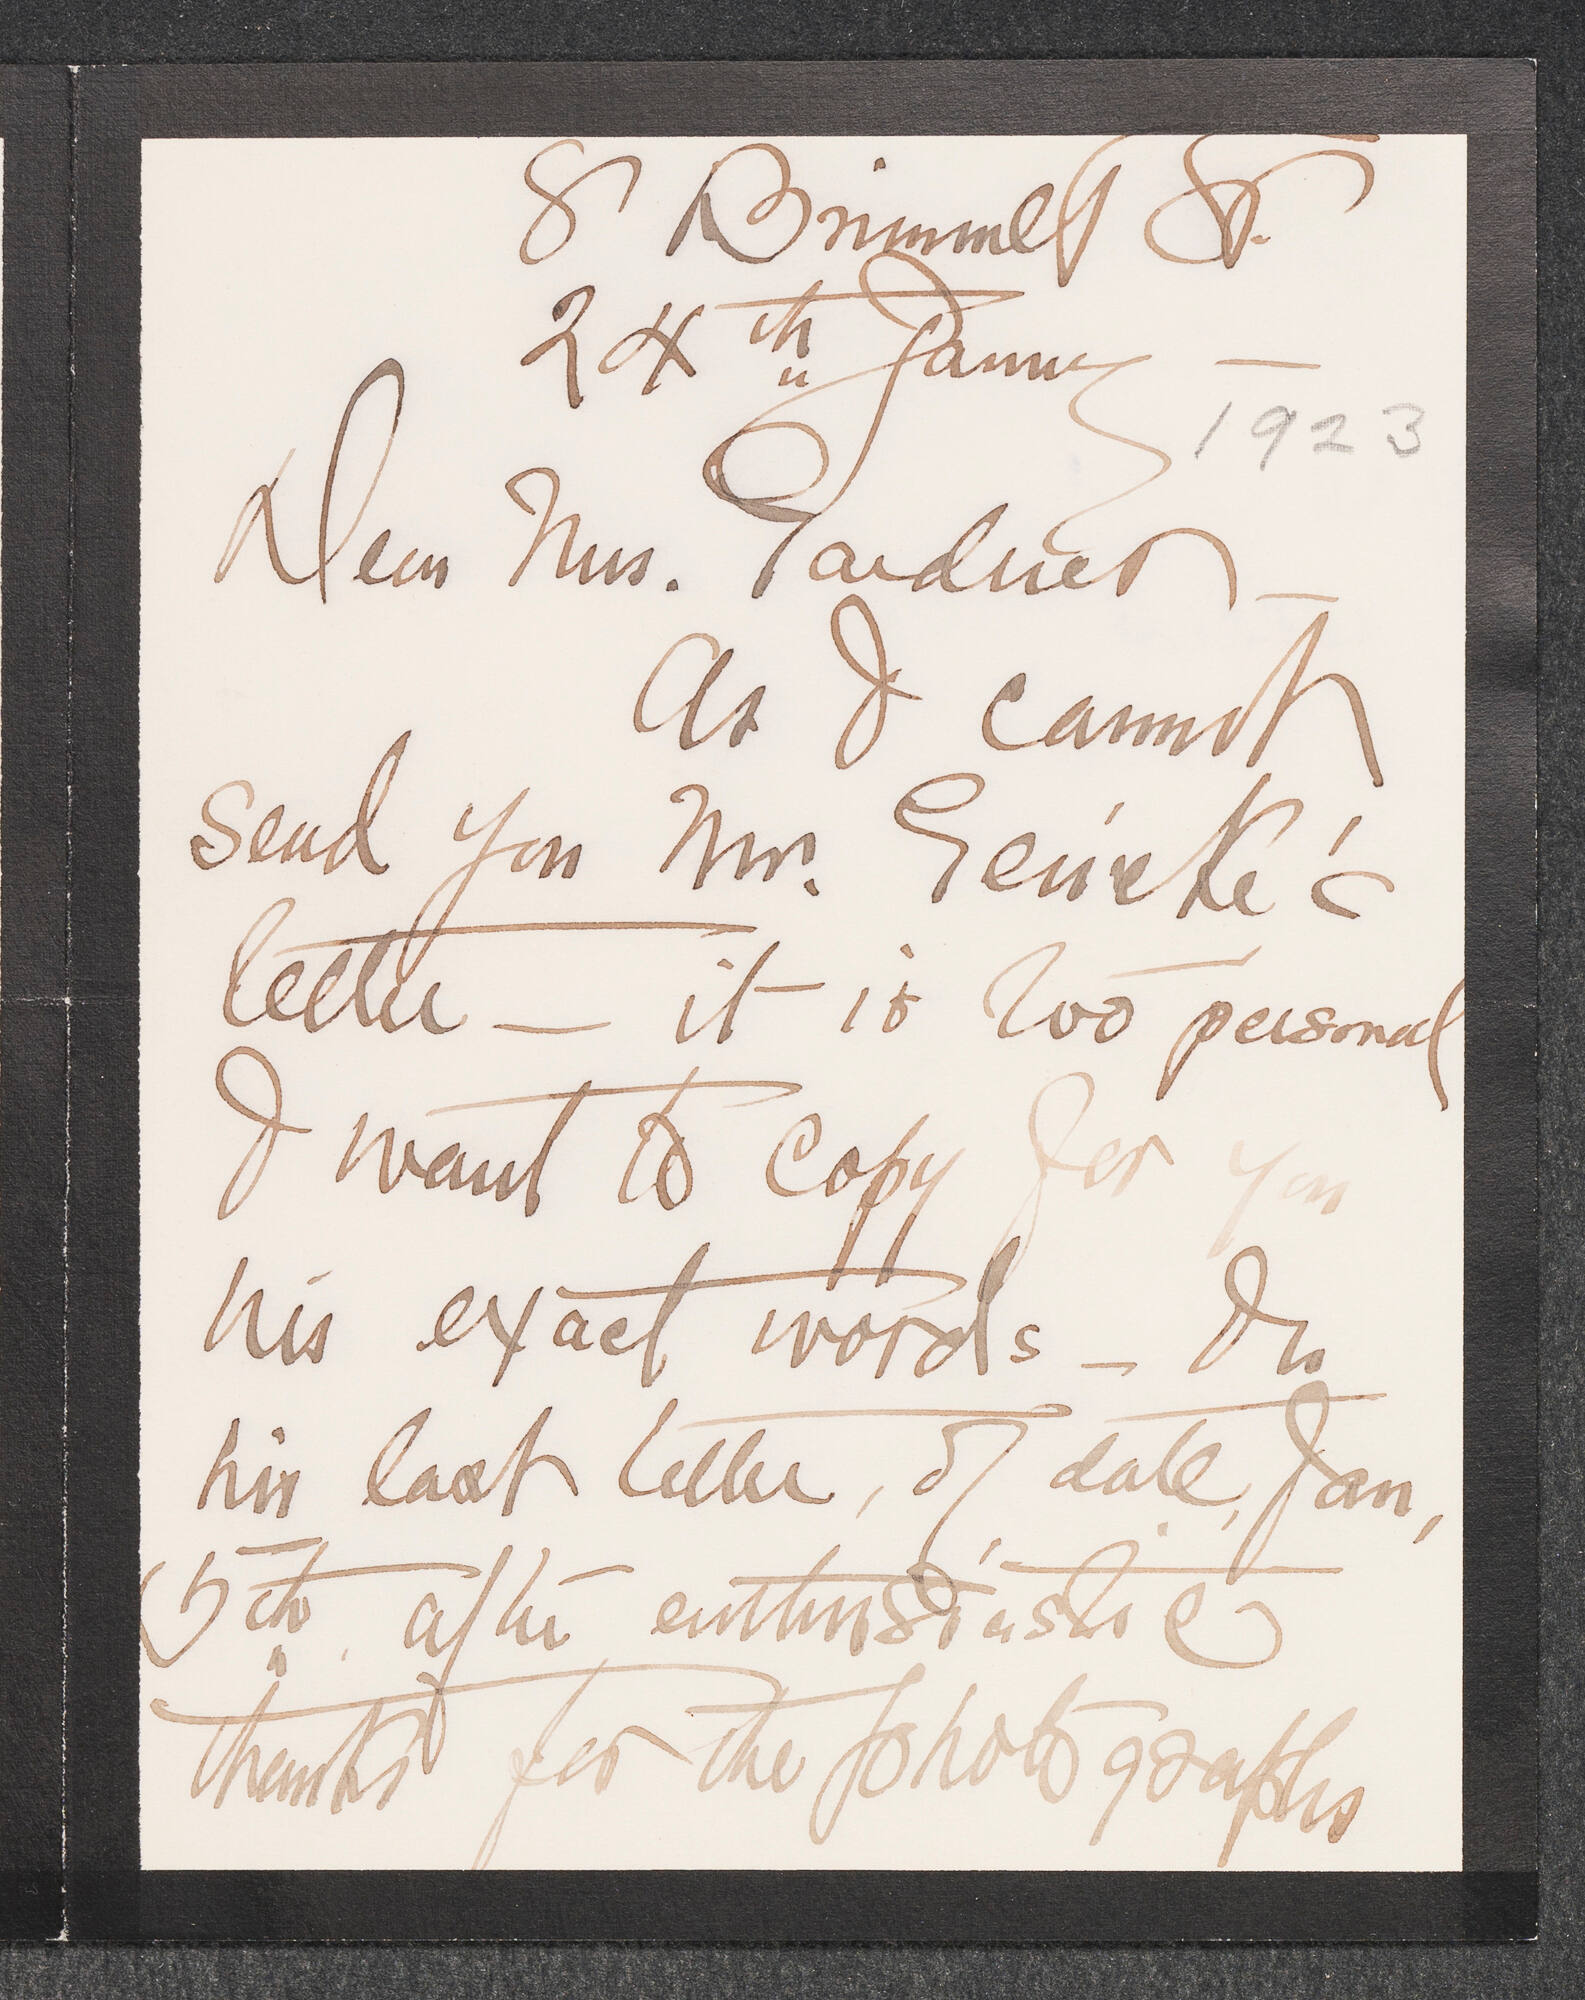 8 Brimmer St.
24th January —
1923
Dear Mrs. Gardner —
As I cannot
send you Mr. Gericke's
letter — it is too personal
I want to copy for you
his exact words — In
his last letter, of date, Jan,
5th. after enthusiastic
thanks for the photographs